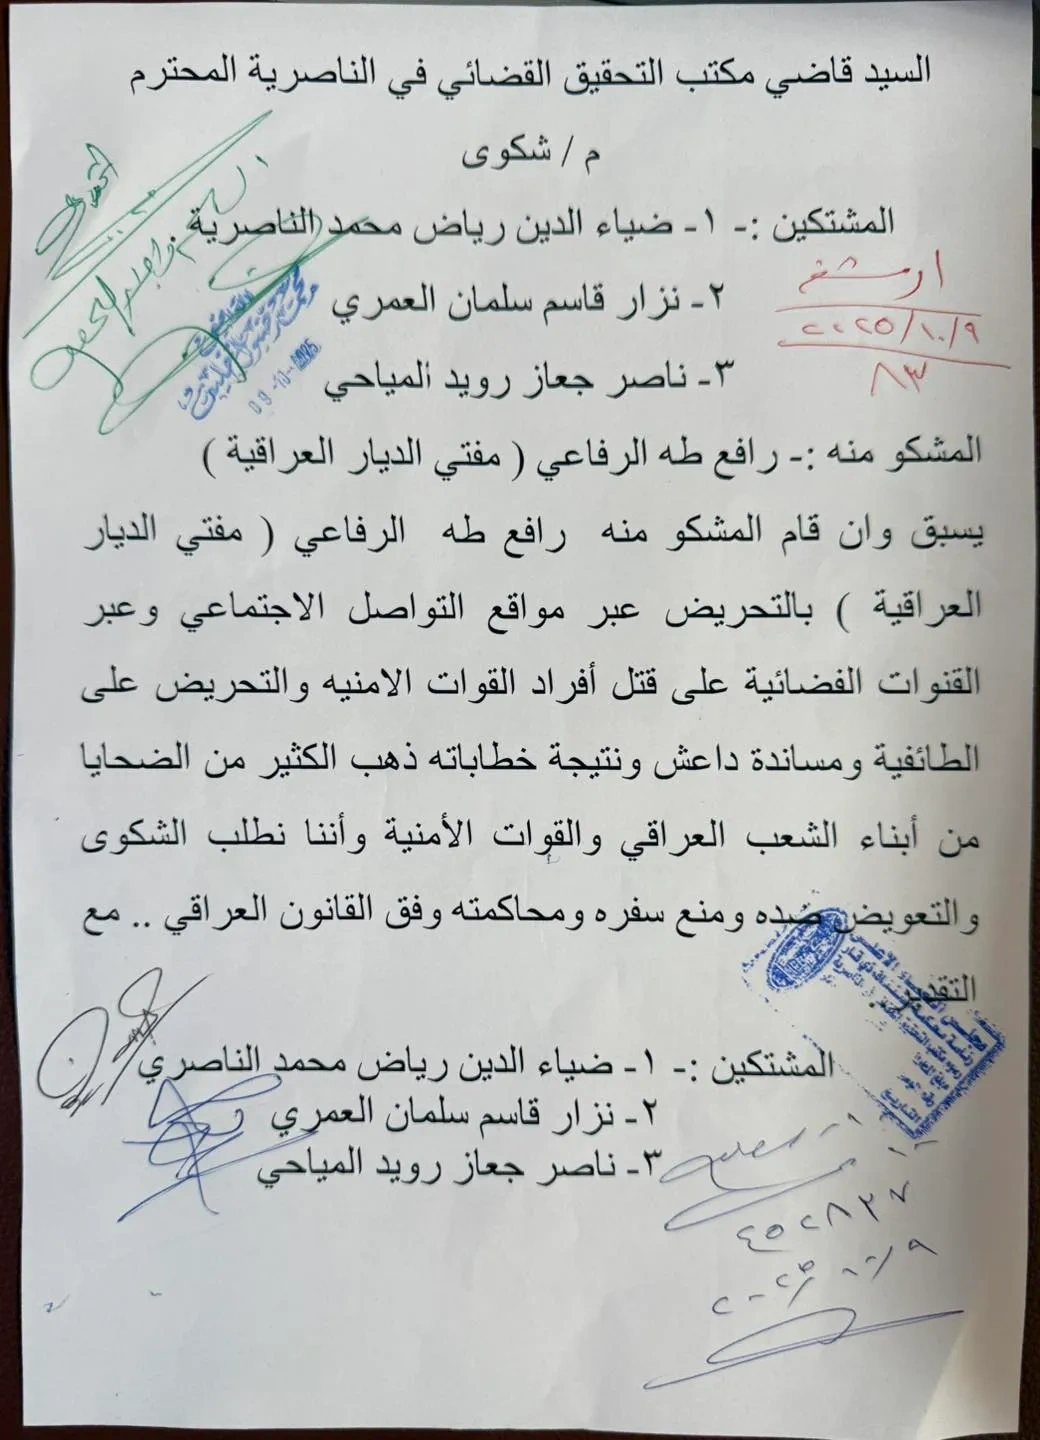 السيد قاضي مكتب التحقيق القضائي في الناصرية المحترم
م / شكوى
المشتكين :- ١- ضياء الدين رياض محمد الناصرية .
٢- نزار قاسم سلمان العمري
ارشفه
٢٠٢٥/١٠/٩
٨٣
09-10-2025
٣- ناصر جعاز رويد المياحي
المشكو منه :- رافع طه الرفاعي ( مفتي الديار العراقية )
يسبق وان قام المشكو منه رافع طه الرفاعي ( مفتي الديار
العراقية ) بالتحريض عبر مواقع التواصل الاجتماعي وعبر
القنوات الفضائية على قتل أفراد القوات الامنيه والتحريض على
الطائفية ومساندة داعش ونتيجة خطاباته ذهب الكثير من الضحايا
من أبناء الشعب العراقي والقوات الأمنية وأننا نطلب الشكوى
والتعويض ضده ومنع سفره ومحاكمته وفق القانون العراقي .. مع
التقدير .
المشتكين :- ١- ضياء الدين رياض محمد الناصري
٢- نزار قاسم سلمان العمري
٣- ناصر جعاز رويد المياحي